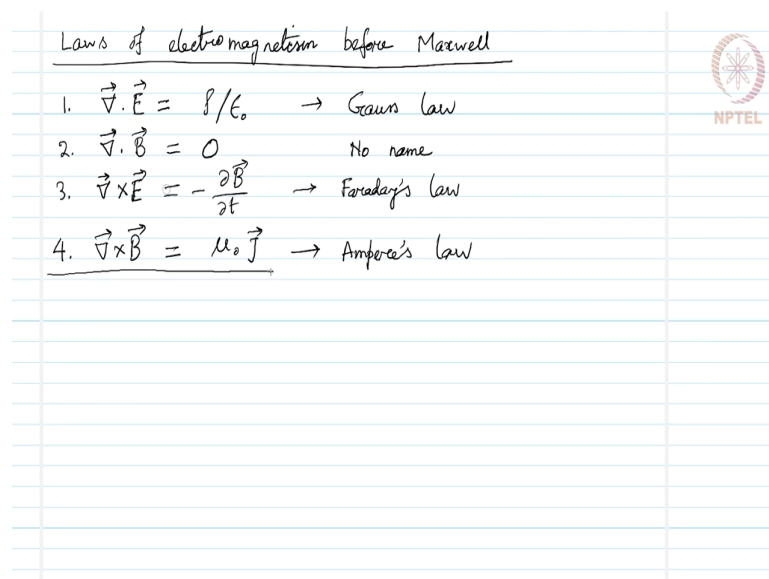 Laws of electromagnetism before Maxwell
1. ∇⃗ . E⃗ = ρ/ε₀ → Gauss law
NPTEL
2. ∇⃗ . B⃗ = 0 No name
3. ∇⃗ × E⃗ = - ∂B⃗/∂t → Faraday's law
4. ∇⃗ × B⃗ = μ₀ J⃗ → Ampere's law